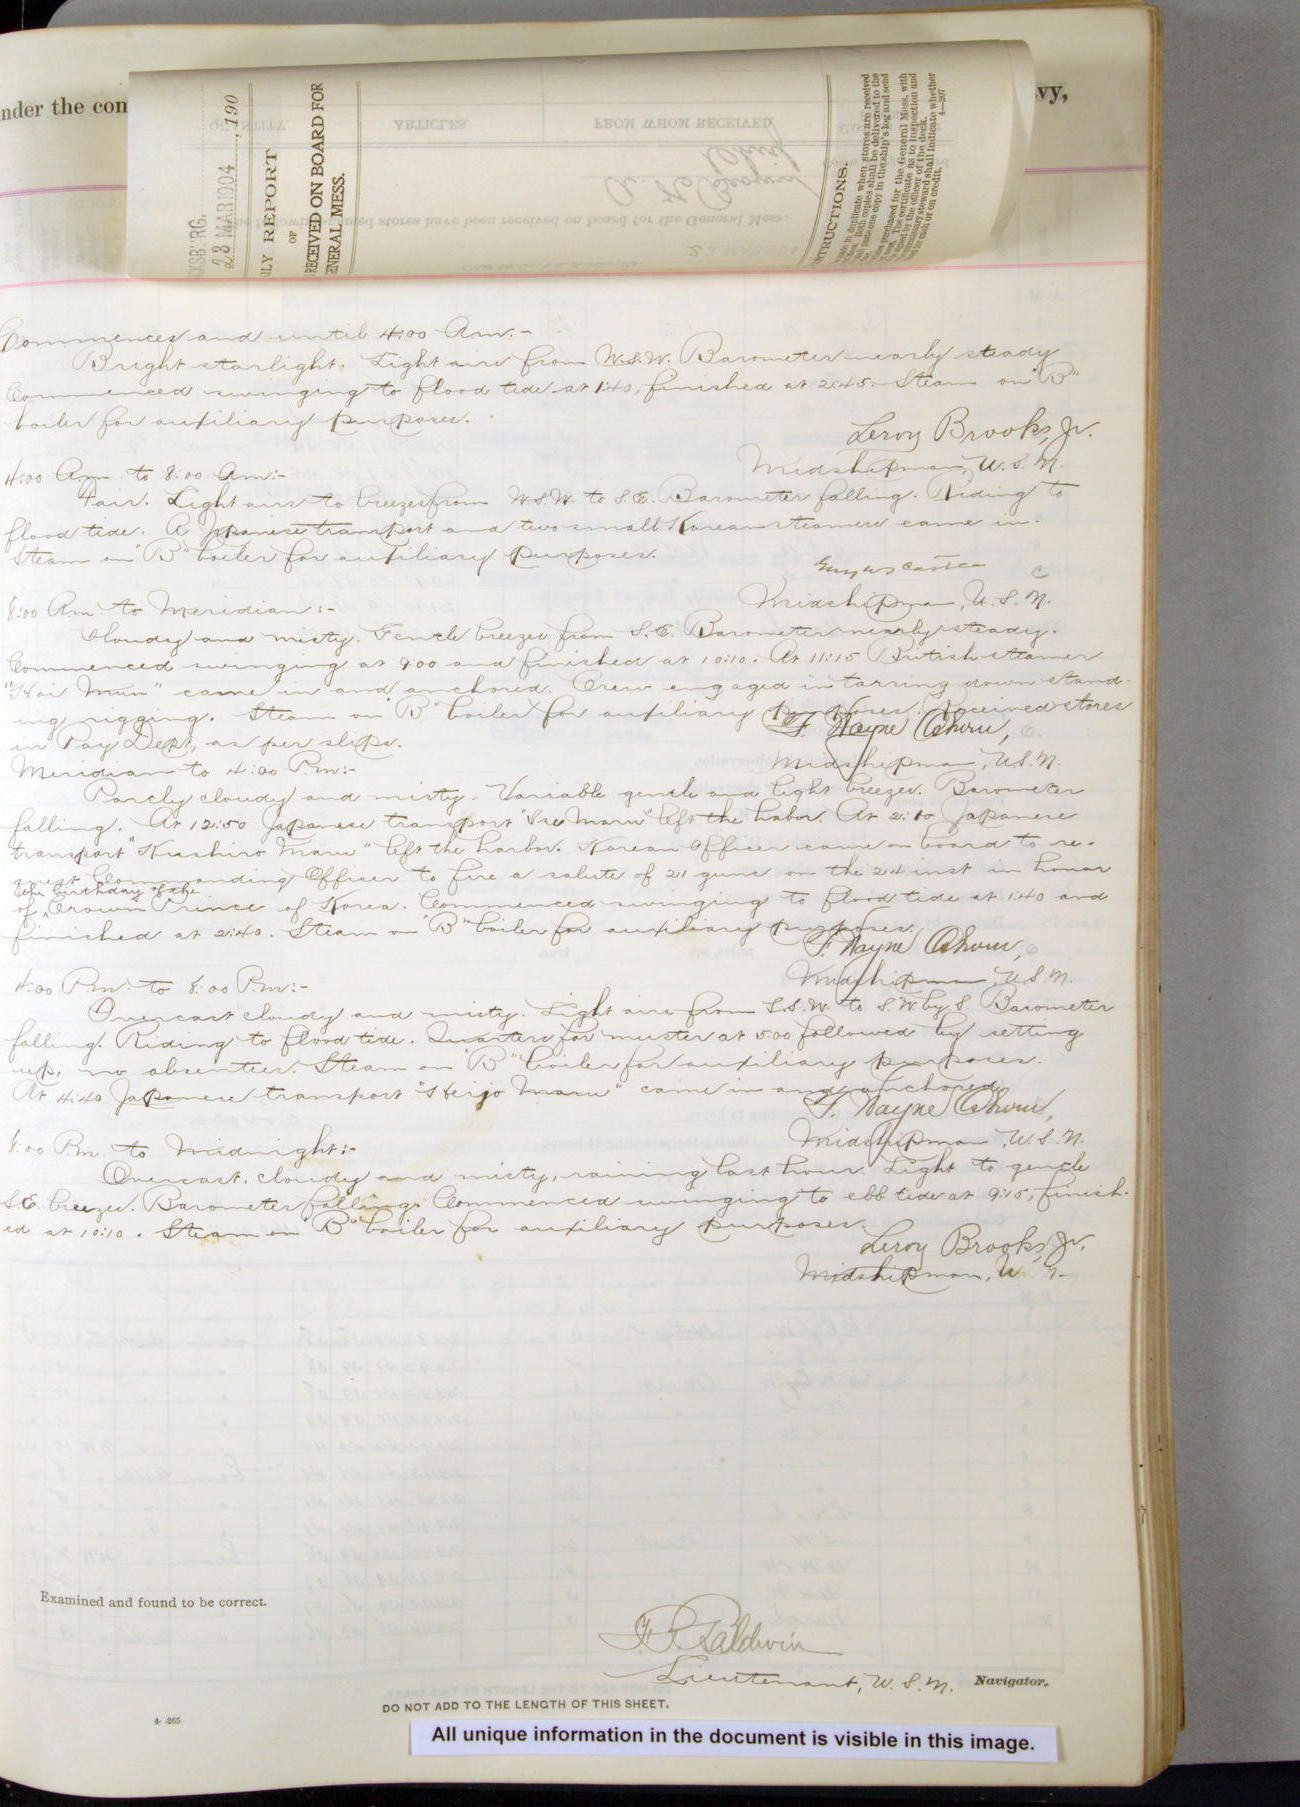 nder the com
vy,
KSBURG.
23 MAR 1904, 190
ILY REPORT
OF
RECEIVED ON BOARD FOR
ENERAL MESS.
QUANTITY
ARTICLES
FROM WHOM RECEIVED
named stores have been received on board for the General Mess:
STRUCTIONS.
in duplicate when stores are received
Both copies shall be delivered to the
paste one copy in the ship's log and send
purchased for the General Mess, with
The certificate as to inspection and
by the officer of the deck.
commissary steward shall indicate whether
cash or on credit.
4—207
Commences and until 4:00 A.m.:-
Bright starlight. Light airs from W.S.W. Barometer nearly steady
Commenced swinging to flood tide at 1:40, finished at 2:45. Steam on "B"
boiler for auxiliary purposes.
Leroy Brooks, Jr.
Midshipman, U.S.N.
4:00 A.m. to 8:00 A.m.:-
Fair. Light airs to breezes from W.S.W. to S.E. Barometer falling. Riding to
flood tide. A Japanese transport and two small Korean steamers came in.
Steam on "B" boiler for auxiliary purposes.
Midshipman, U.S.N.
8:00 A.m. to Meridian:-
Cloudy and misty. Gentle breezes from S.E. Barometer nearly steady.
Commenced swinging at 9:00 and finished at 10:10. At 11:15 British steamer
"Hai Mun" came in and anchored. Crew engaged in tarring down stand-
ing rigging. Steam on "B" boiler for auxiliary purposes. Received stores
in Pay Dept, as per slips.
Wayne
Midshipman, U.S.N.
Meridian to 4:00 P.m:-
Partly cloudy and misty. Variable gentle and light breezes. Barometer
falling. At 12:50 Japanese transport "Ise Maru" left the harbor. At 2:10 Japanese
transport "Kushiro Maru" left the harbor. Korean Officer came on board to re-
quest Commanding Officer to fire a salute of 21 guns on the 24 inst in honor
the birthday of the
of Crown Prince of Korea. Commenced swinging to flood tide at 1:40 and
finished at 2:40. Steam on "B" boiler for auxiliary purposes.
Wayne
Midshipman U.S.N.
4:00 P.m. to 8:00 P.m:-
Overcast cloudy and misty. Light airs from S.S.W. to S.W. by S. Barometer
falling. Riding to flood tide. Quarters for muster at 5:00 followed by setting
up; no absentees. Steam on "B" boiler for auxiliary purposes.
At 4:40 Japanese transport "Heijo Maru" came in and anchored.
Wayne
Midshipman U.S.N.
8:00 P.m. to Midnight:-
Overcast, cloudy and misty, raining last hour. Light to gentle
S.E. breezes. Barometer falling. Commenced swinging to ebb tide at 9:15, finish-
ed at 10:10. Steam on "B" boiler for auxiliary purposes.
Leroy Brooks, Jr.
Midshipman, U. N.
Examined and found to be correct.
Baldwin
Lieutenant, U.S.N. Navigator.
DO NOT ADD TO THE LENGTH OF THIS SHEET.
4-265
All unique information in the document is visible in this image.